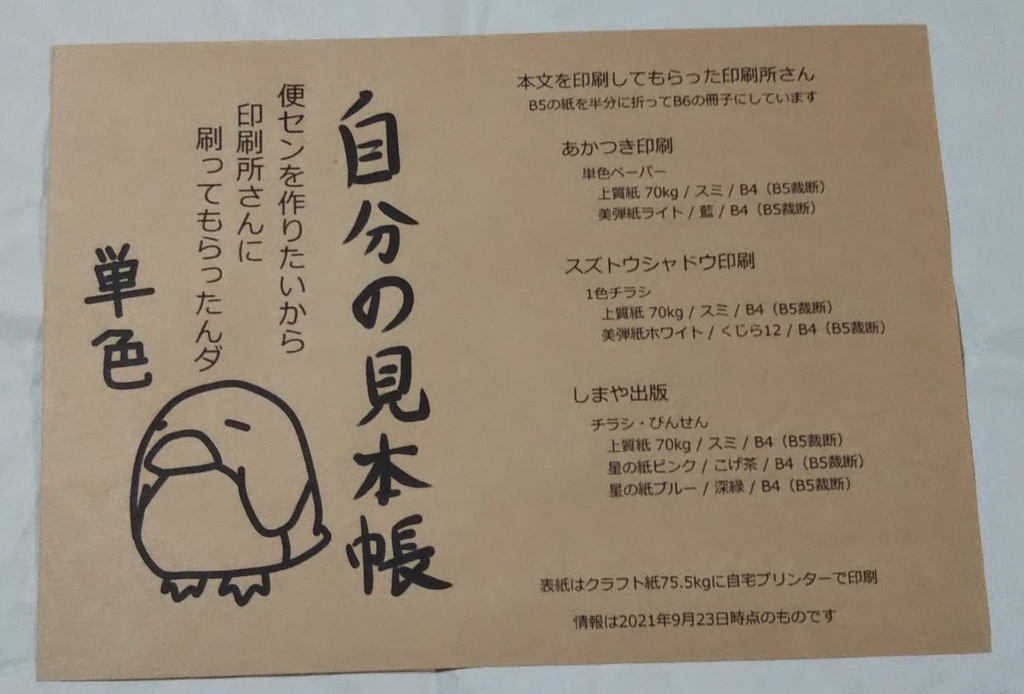 自分の見本帳
便センを作りたいから
印刷所さんに
刷ってもらったんダ
単色
本文を印刷してもらった印刷所さん
B5の紙を半分に折ってB6の冊子にしています
あかつき印刷
単色ペーパー
上質紙 70kg / スミ / B4（B5裁断）
美弾紙ライト / 藍 / B4（B5裁断）
スズトウシャドウ印刷
1色チラシ
上質紙 70kg / スミ / B4（B5裁断）
美弾紙ホワイト / くじら12 / B4（B5裁断）
しまや出版
チラシ・びんせん
上質紙 70kg / スミ / B4（B5裁断）
星の紙ピンク / こげ茶 / B4（B5裁断）
星の紙ブルー / 深緑 / B4（B5裁断）
表紙はクラフト紙75.5kgに自宅プリンターで印刷
情報は2021年9月23日時点のものです